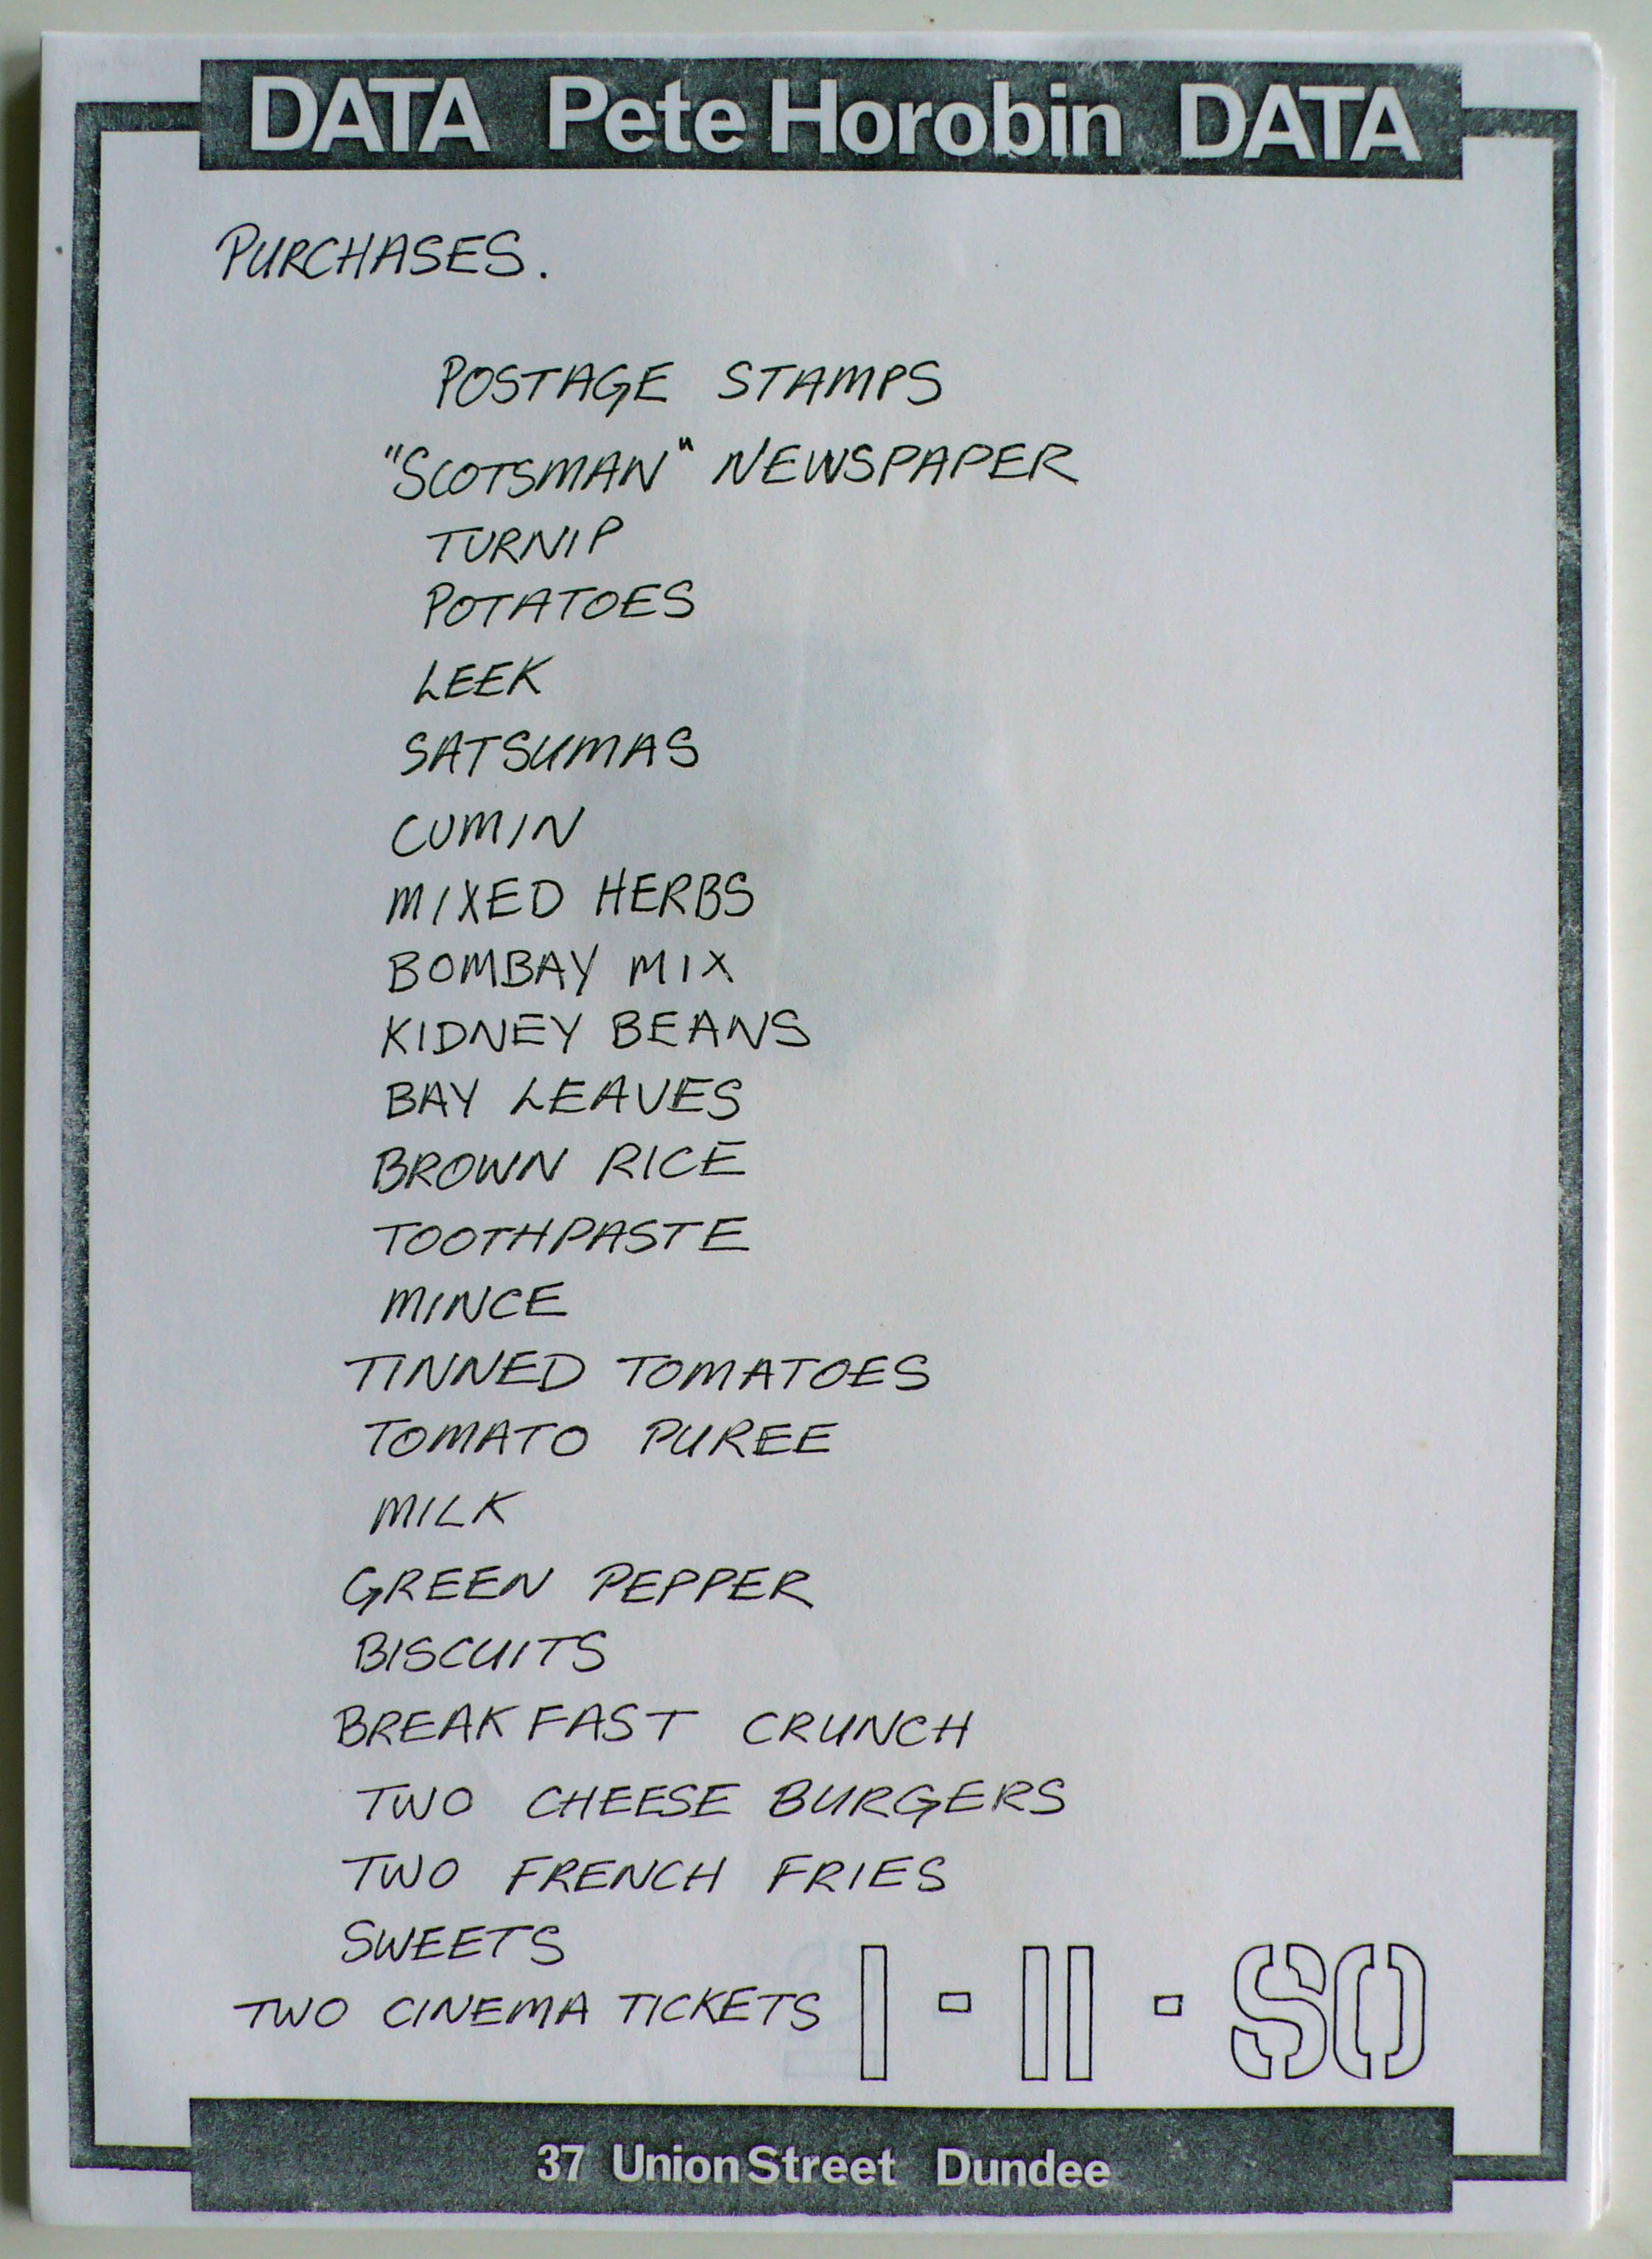 DATA Pete Horobin DATA
PURCHASES.
POSTAGE STAMPS
"SCOTSMAN" NEWSPAPER
TURNIP
POTATOES
LEEK
SATSUMAS
CUMIN
MIXED HERBS
BOMBAY MIX
KIDNEY BEANS
BAY LEAVES
BROWN RICE
TOOTHPASTE
MINCE
TINNED TOMATOES
TOMATO PUREE
MILK
GREEN PEPPER
BISCUITS
BREAKFAST CRUNCH
TWO CHEESE BURGERS
TWO FRENCH FRIES
SWEETS
TWO CINEMA TICKETS 1 - 11 - 80
37 Union Street Dundee